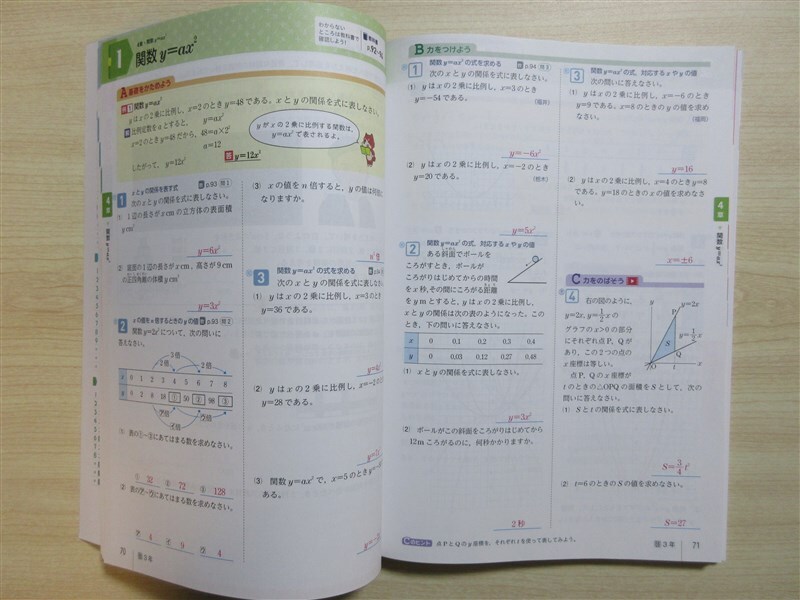 4章・関数 y=ax²
1 関数 y=ax²
わからない
ところは教科書で
確認しよう!
教科書
A 基礎をかためよう
例1 関数 y=ax²
yはxの2乗に比例し、x=2のときy=48である。xとyの関係を式に表しなさい。
比例定数をaとすると、 y=ax²
x=2のときy=48だから、 48=a×2²
a=12
したがって、 y=12x²
答 y=12x²
yがxの2乗に比例する関数は、
y=ax²で表されるよ。
1 xとyの関係を表す式 教 p.93 問1
次のxとyの関係を式に表しなさい。
(1) 1辺の長さがxcmの立方体の表面積
ycm²
y=6x²
(2) 底面の1辺の長さがxcm、高さが9cm
の正四角錐の体積ycm³
y=3x²
2 xの値を変するときのyの値 教 p.93 問2
関数y=2x²について、次の問いに
答えなさい。
3倍
2倍 2倍
x 0 1 2 3 4 5 6 7 8
y 0 2 8 18 ① 50 ② 98 ③
(1) 表の①~③にあてはまる数を求めなさい。
① 32 ② 72 ③ 128
(2) 表の㋐~㋒にあてはまる数を求めなさい。
㋐ 4 ㋑ 9 ㋒ 4
(3) xの値をn倍すると、yの値は何倍に
なりますか。
n²倍
3 関数y=ax²の式を求める
次のxとyの関係を
(1) yはxの2乗に比例し、x=3のとき
y=36である。
(2) yはxの2乗に比例し、x=-2の
y=28である。
(3) 関数y=ax²で、x=5のとき
ある。
4章
関数 y=ax²
70 啓3年
B 力をつけよう
1 関数y=ax²の式を求める 教 p.94 問1
次のxとyの関係を式に表しなさい。
(1) yはxの2乗に比例し、x=3のとき
y=-54である。
y=-6x²
(2) yはxの2乗に比例し、x=-2のとき
y=20である。 (栃木)
y=5x²
2 関数y=ax²の式、対応するxやyの値
ある斜面でボールを
ころがすとき、ボールが
ころがりはじめてからの時間
をx秒、その間にころがる距離
をymとすると、yはxの2乗に比例し、
xとyの関係は次の表のようになった。この
とき、下の問いに答えなさい。
x 0 0.1 0.2 0.3 0.4
y 0 0.03 0.12 0.27 0.48
(1) xとyの関係を式に表しなさい。
y=3x²
(2) ボールがこの斜面をころがりはじめてから
12mころがるのに、何秒かかりますか。
2秒
3 関数y=ax²の式、対応するxやyの値
次の問いに答えなさい。
(1) yはxの2乗に比例し、x=-6のとき
y=9である。x=8のときのyの値を求め
なさい。 (福岡)
y=16
(2) yはxの2乗に比例し、x=4のときy=8
である。y=18のときのxの値を求めなさ
い。
x=±6
C 力をのばそう
4 右の図のように、
y=2x、y=½xの
グラフのx>0の部分
にそれぞれ点P、Qが
あり、この2つの点の
x座標は等しい。
点P、Qのx座標が
tのときの△OPQの面積をSとして、次の
問いに答えなさい。
y y=2x
P
y=½x
S Q
O t x
(1) Sとtの関係を式に表しなさい。
S=¾t²
(2) t=6のときのSの値を求めなさい。
S=27
Cのヒント 点PとQのy座標を、それぞれtを使って表してみよう。
4章
関数 y=ax²
啓3年 71